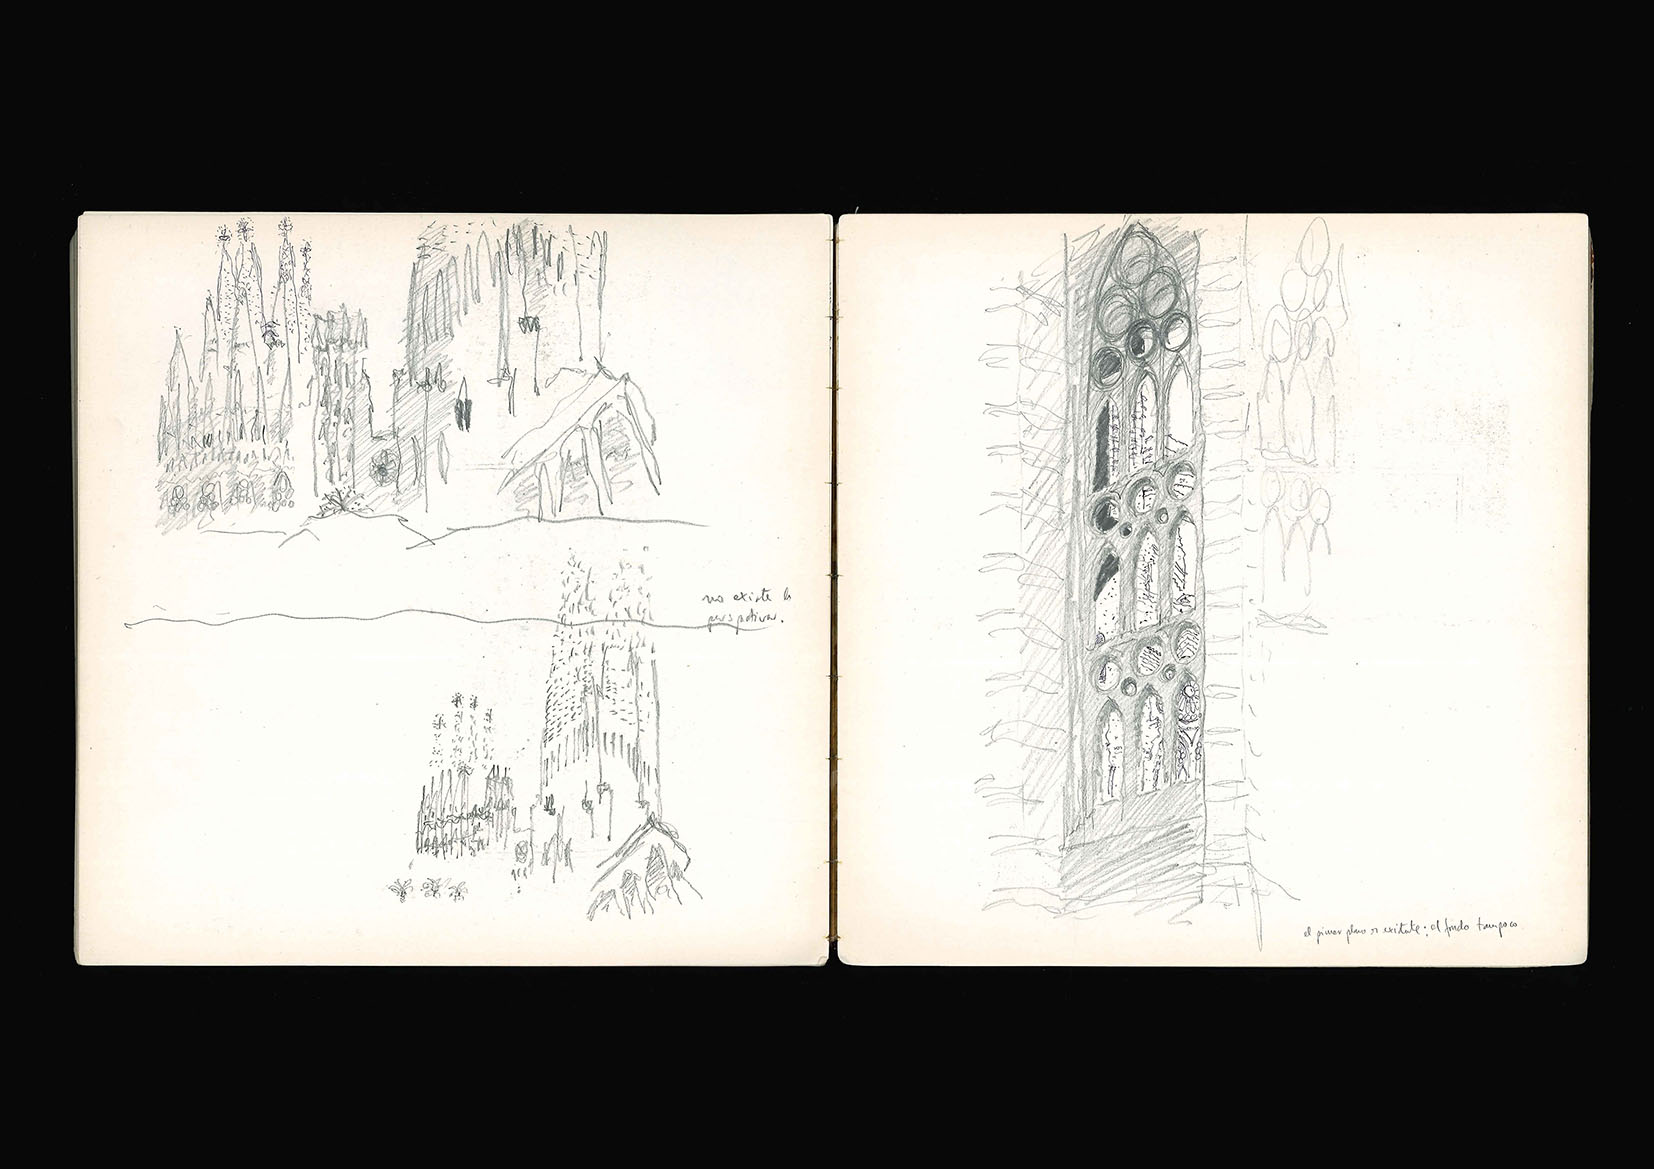 no existe la
perspectiva.
el primer plano no existe; el fondo tampoco